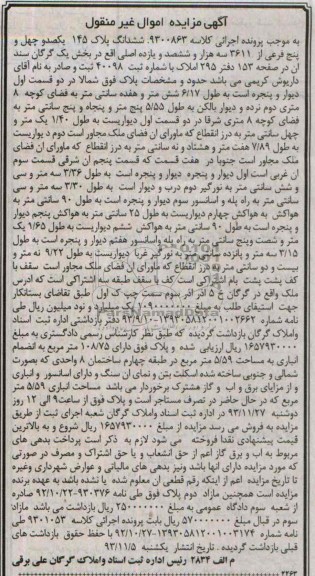 آگهی مزایده اموال غیر منقول
به موجب پرونده اجرائی کلاسه ۹۳۰۰۸۶۳، ششدانگ پلاک ۱۴۵ یکصدو چهل و
پنج فرعی از ۳۶۱۱ سه هزار و ششصد و یازده اصلی اقع در بخش یک گرگان سند
آن در صفحه ۱۵۳ دفتر ۲۹۵ املاک با شماره ثبت ۴۰۰۹۸ ثبت و صادر به نام آقای
داریوش کریمی می باشد حدود و مشخصات پلاک فوق شمالا در دو قسمت اول
دیوار و پنجره است به طول ۶/۱۷ شش متر و هفده سانتی متر به فضای کوچه ۸
متری دوم نرده و دیوار بالکن به طول ۵/۵۵ پنج متر و پنجاه و پنج سانتی متر به
فضای کوچه ۸ متری شرقا در دو قسمت اول دیواریست به طول ۱/۴۰ یک متر و
چهل سانتی متر به درز انقطاع که ماورای آن فضای ملک مجاور است دوم دیواریست
به طول ۷/۸۹ هفت متر و هشتاد و نه سانتی متر به درز انقطاع که ماورای آن فضای
ملک مجاور است جنوبا در هفت قسمت که قسمت پنجم آن شرقی قسمت سوم
آن غربی است اول دیوار و پنجره دیوار و پنجره است به طول ۳/۳۶ سه متر و سی
و شش سانتی متر به نورگیر دوم درب و دیوار است به طول ۳/۳۰ سه متر و سی
سانتی متر به راه پله و آسانسور سوم دیوار و پنجره است به طول ۹۰ سانتی متر به
هواکش به هواکش چهارم دیواریست به طول ۲۵ سانتی متر به هواکش پنجم دیوار
و پنجره است به طول ۹۰ سانتی متر به هواکش ششم دیواریست به طول ۱/۶۵ یک
متر و شصت وپنج سانتی متر به راه پله وآسانسور هفتم دیوار و پنجره است به طول
۳/۱۵ سه متر و پانزده سانتی متر به نورگیر غربا دیواریست به طول ۹/۲۲ نه متر و
بیست و دو سانتی متر به درز انقطاع که ماورای آن فضای ملک مجاور است سقف با
کف پشت بام اشتراکی است کف با سقف طبقه سه اشتراکی است که آدرس
ملک واقع در گرگان خ ۵ آذر آذر سوم سمت چپ ک اول طبق تقاضای بستانکار
جهت استیفای طلب به مبلغ ۱۰۹۰۰۰۰۰۰۰ یک میلیارد و نود میلیون ریال طی
نامه شماره دفتر بازداشتی اداره ثبت اسناد
واملاک گرگان بازداشت گردیده که طبق نظر کارشناس رسمی دادگستری به مبلغ
۱۶۵۷۹۳۰۰۰۰ ریال ارزیابی شده و پلاک فوق دارای ۱۰۸/۷۵ متر مربع به انضمام
انباری به مساحت ۵/۵۹ متر مربع در طبقه چهارم ساختمان ۸ واحدی که بصورت
شمالی و جنوبی ساخته شده اسکلت بتن و نمای آن سنگ و دارای آسانسور و انباری
و از مزایای برق و آب و گاز مشترک برخوردار می باشد مساحت انباری ۵/۵۹ متر
مربع که در حال حاضر در تصرف مستاجر است و پلاک فوق از ساعت ۹ الی ۱۲ روز
دوشنبه ۹۳/۱۱/۲۷ در اداره ثبت اسناد واملاک گرگان شعبه اجرای ثبت از طریق
مزایده به فروش می رسد مزایده از مبلغ ۱۶۵۷۹۳۰۰۰۰ ریال شروع و به بالاترین
قیمت پیشنهادی نقدا فروخته می شود لازم به ذکر است پرداخت بدهی های
مربوط به آب و برق گاز اعم از حق انشعاب و یا حق اشتراک و مصرف در صورتی
که مورد مزایده دارای آنها باشد ونیز بدهی های مالیاتی و عوارض شهرداری وغیره
تا تاریخ مزایده اعم از اینکه رقم قطعی آن معلوم شده یا نشده باشد به عهده برنده
مزایده است همچنین مازاد دوم پلاک فوق طی نامه ۹۳۰۳۷۶-۹۲/۱۰/۲۲ صادره
از شعبه سوم دادگاه عمومی به مبلغ ۲۵۰۰۰۰۰۰۰ ریال بازداشت می باشد مازاد
سوم در قبال مبلغ ۵۷۰۰۰۰۰۰۰ ریال بابت پرونده اجرائی کلاسه ۹۳۰۱۰۵۳ طی
نامه شماره ۱۳۹۳۰۵۸۱۲۰۰۱۰۳۱۷۴-۹۲/۱۰/۲۷ با حفظ حقوق بازداشت های
قبلی بازداشت گردیده. تاریخ انتشار یکشنبه ۹۳/۱۱/۵
م الف ۲۸۳۴ رئیس اداره ثبت اسناد واملاک گرگان علی برقی
۲۲۶۳